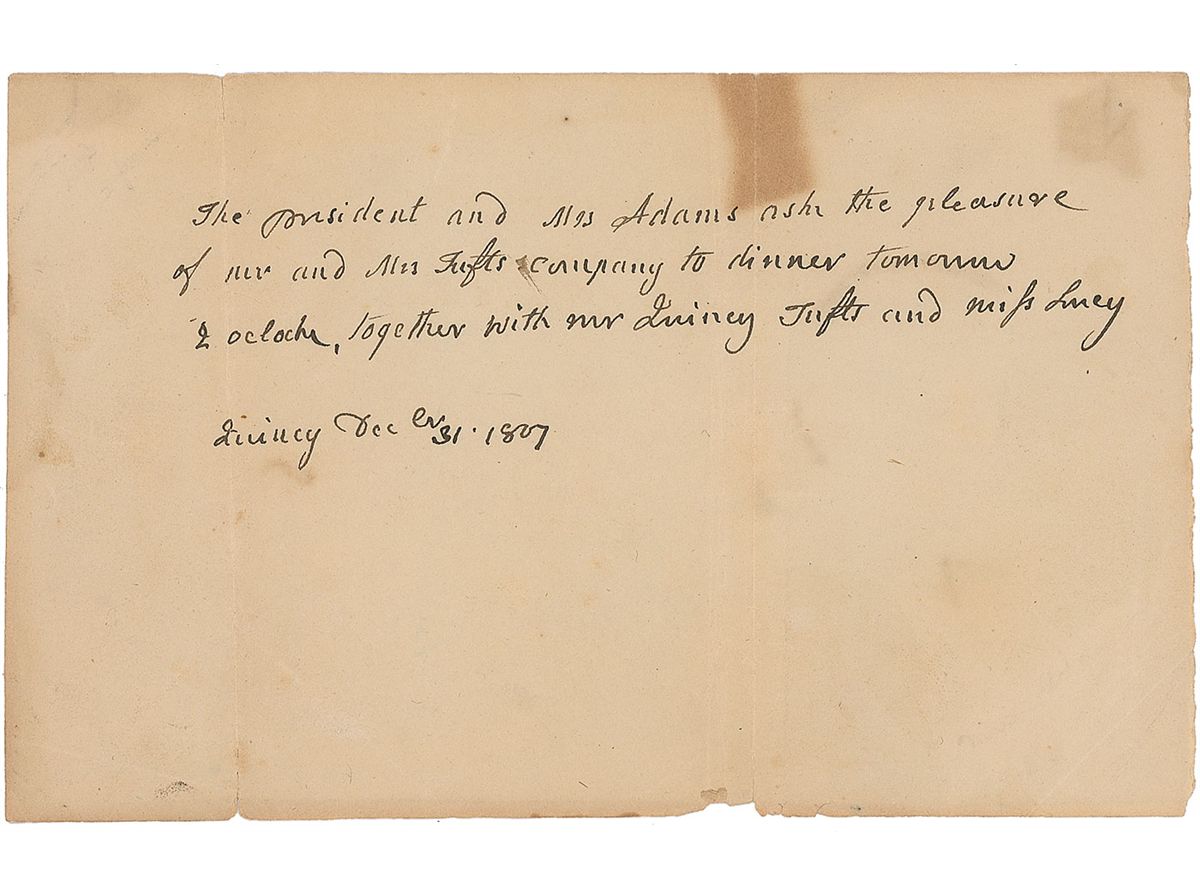 The president and Mrs Adams ask the pleasure
of mr and Mrs Tufts company to dinner tomorrow
2 oclock, together with mr Quincy Tufts and miss Lucy
Quincy Decer 31. 1807